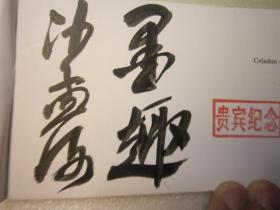 墨趣
沙孟海
Celadon
贵宾纪念